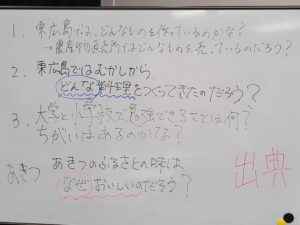 1. 東広島では、どんなものを作っているのかな？
→農産物直売所ではどんなものを売っているのだろう？
2. 東広島ではむかしから
どんな料理をつくってきたのだろう？
3. 大学と小学校で勉強できることは何？
ちがいはあるのかな？
あきつ あきつのふるさとの味は
なぜおいしいのだろう？
出典